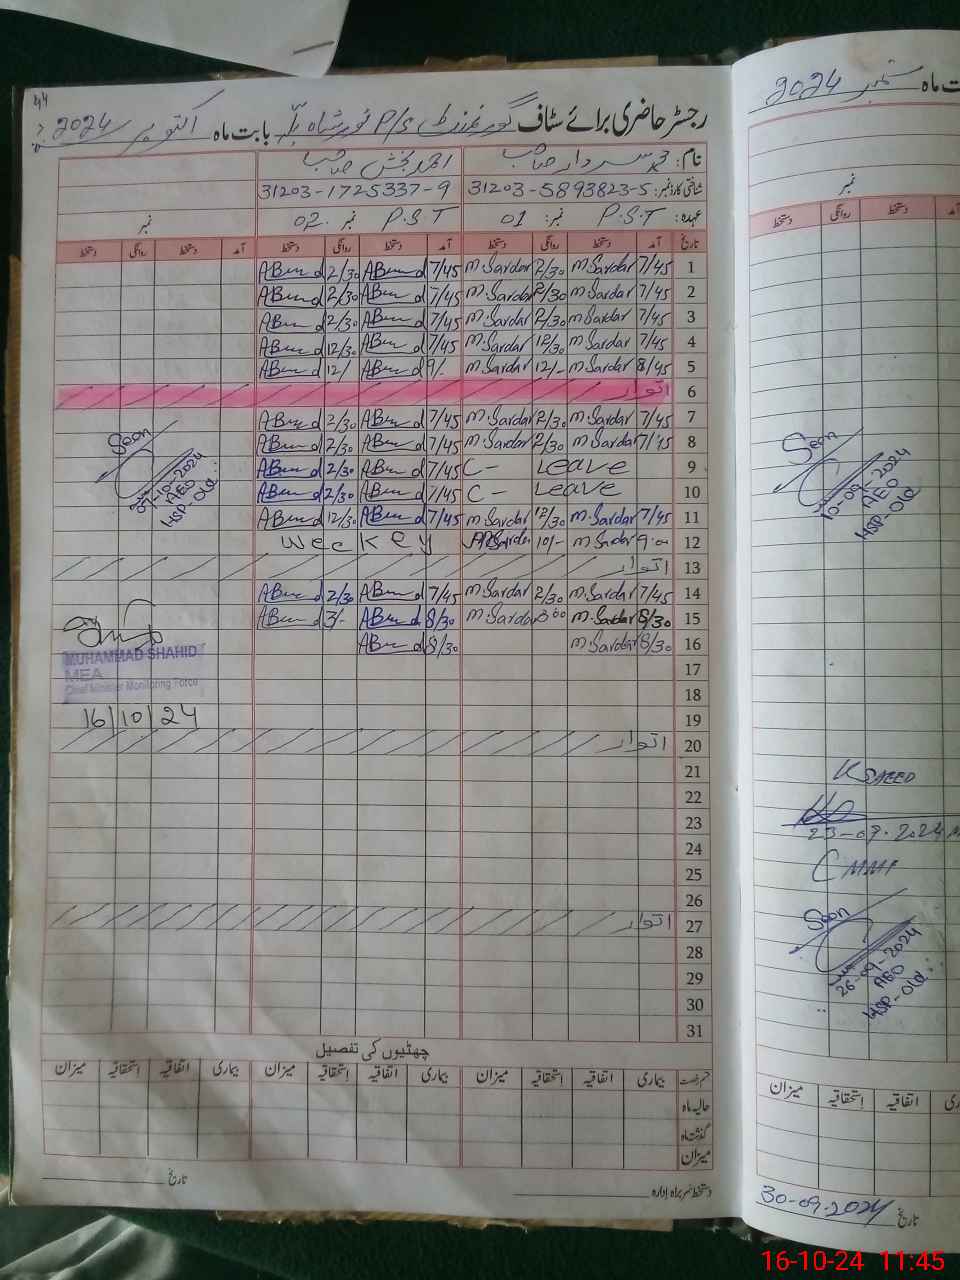 رجسٹر حاضری برائے سٹاف گورنمنٹ P/S نور شاہ بابت ماہ اکتوبر 2024
نام: محمد سردار صاحب احمد بخش صاحب
شناختی کارڈ نمبر: 31203-5893823-5 31203-1725337-9
عہدہ: P.S.T نمبر: 01 P.S.T نمبر 02. نمبر
تاریخ آمد دستخط روانگی دستخط آمد دستخط روانگی دستخط آمد دستخط روانگی دستخط
1 7/45 M.Sardar 2/30 M.Sardar 7/45 ABund 2/30 ABund
2 7/45 M.Sardar 2/30 M.Sardar 7/45 ABund 2/30 ABund
3 7/45 M.Sardar 2/30 M.Sardar 7/45 ABund 2/30 ABund
4 7/45 M.Sardar 12/30 M.Sardar 7/45 ABund 12/30 ABund
5 8/45 M.Sardar 12/- M.Sardar 9/- ABund 12/ ABund
6 اتوار
7 7/45 M.Sardar 2/30 M.Sardar 7/45 ABund 2/30 ABund
8 7/45 M.Sardar 2/30 M.Sardar 7/45 ABund 2/30 ABund
9 C- Leave 7/45 ABund 2/30 ABund
10 C- Leave 7/45 ABund 2/30 ABund
11 7/45 M.Sardar 12/30 M.Sardar 7/45 ABund 12/30 ABund
12 9:00 M.Sardar 10/- M.Sardar weekey
13 اتوار
14 7/45 M.Sardar 2/30 M.Sardar 7/45 ABund 2/30 ABund
15 8/30 M.Sardar 3:00 M.Sardar 8/30 ABund 3/- ABund
16 8/30 M.Sardar 8/30 ABund
17
18
19
20 اتوار
21
22
23
24
25
26
27 اتوار
28
29
30
31
Seen
09-10-2024
AEO
HSP-Old
MUHAMMAD SHAHID
MEA
Chief Minister Monitoring Force
16/10/24
چھٹیوں کی تفصیل
قسم رخصت بیماری اتفاقیہ استحقاقیہ میزان بیماری اتفاقیہ استحقاقیہ میزان بیماری اتفاقیہ استحقاقیہ میزان
حالیہ ماہ
گذشتہ ماہ
میزان
دستخط سربراہ ادارہ
تاریخ
ت ماہ ستمبر 2024
نمبر
آمد دستخط روانگی دستخط
Seen
10-09-2024
AEO
HSP-Old
K SAEED
23-09-2024
CMMF
Seen
26-09-2024
AEO
HSP-Old
اتفاقیہ استحقاقیہ میزان
تاریخ 30-09-2024
16-10-24 11:45